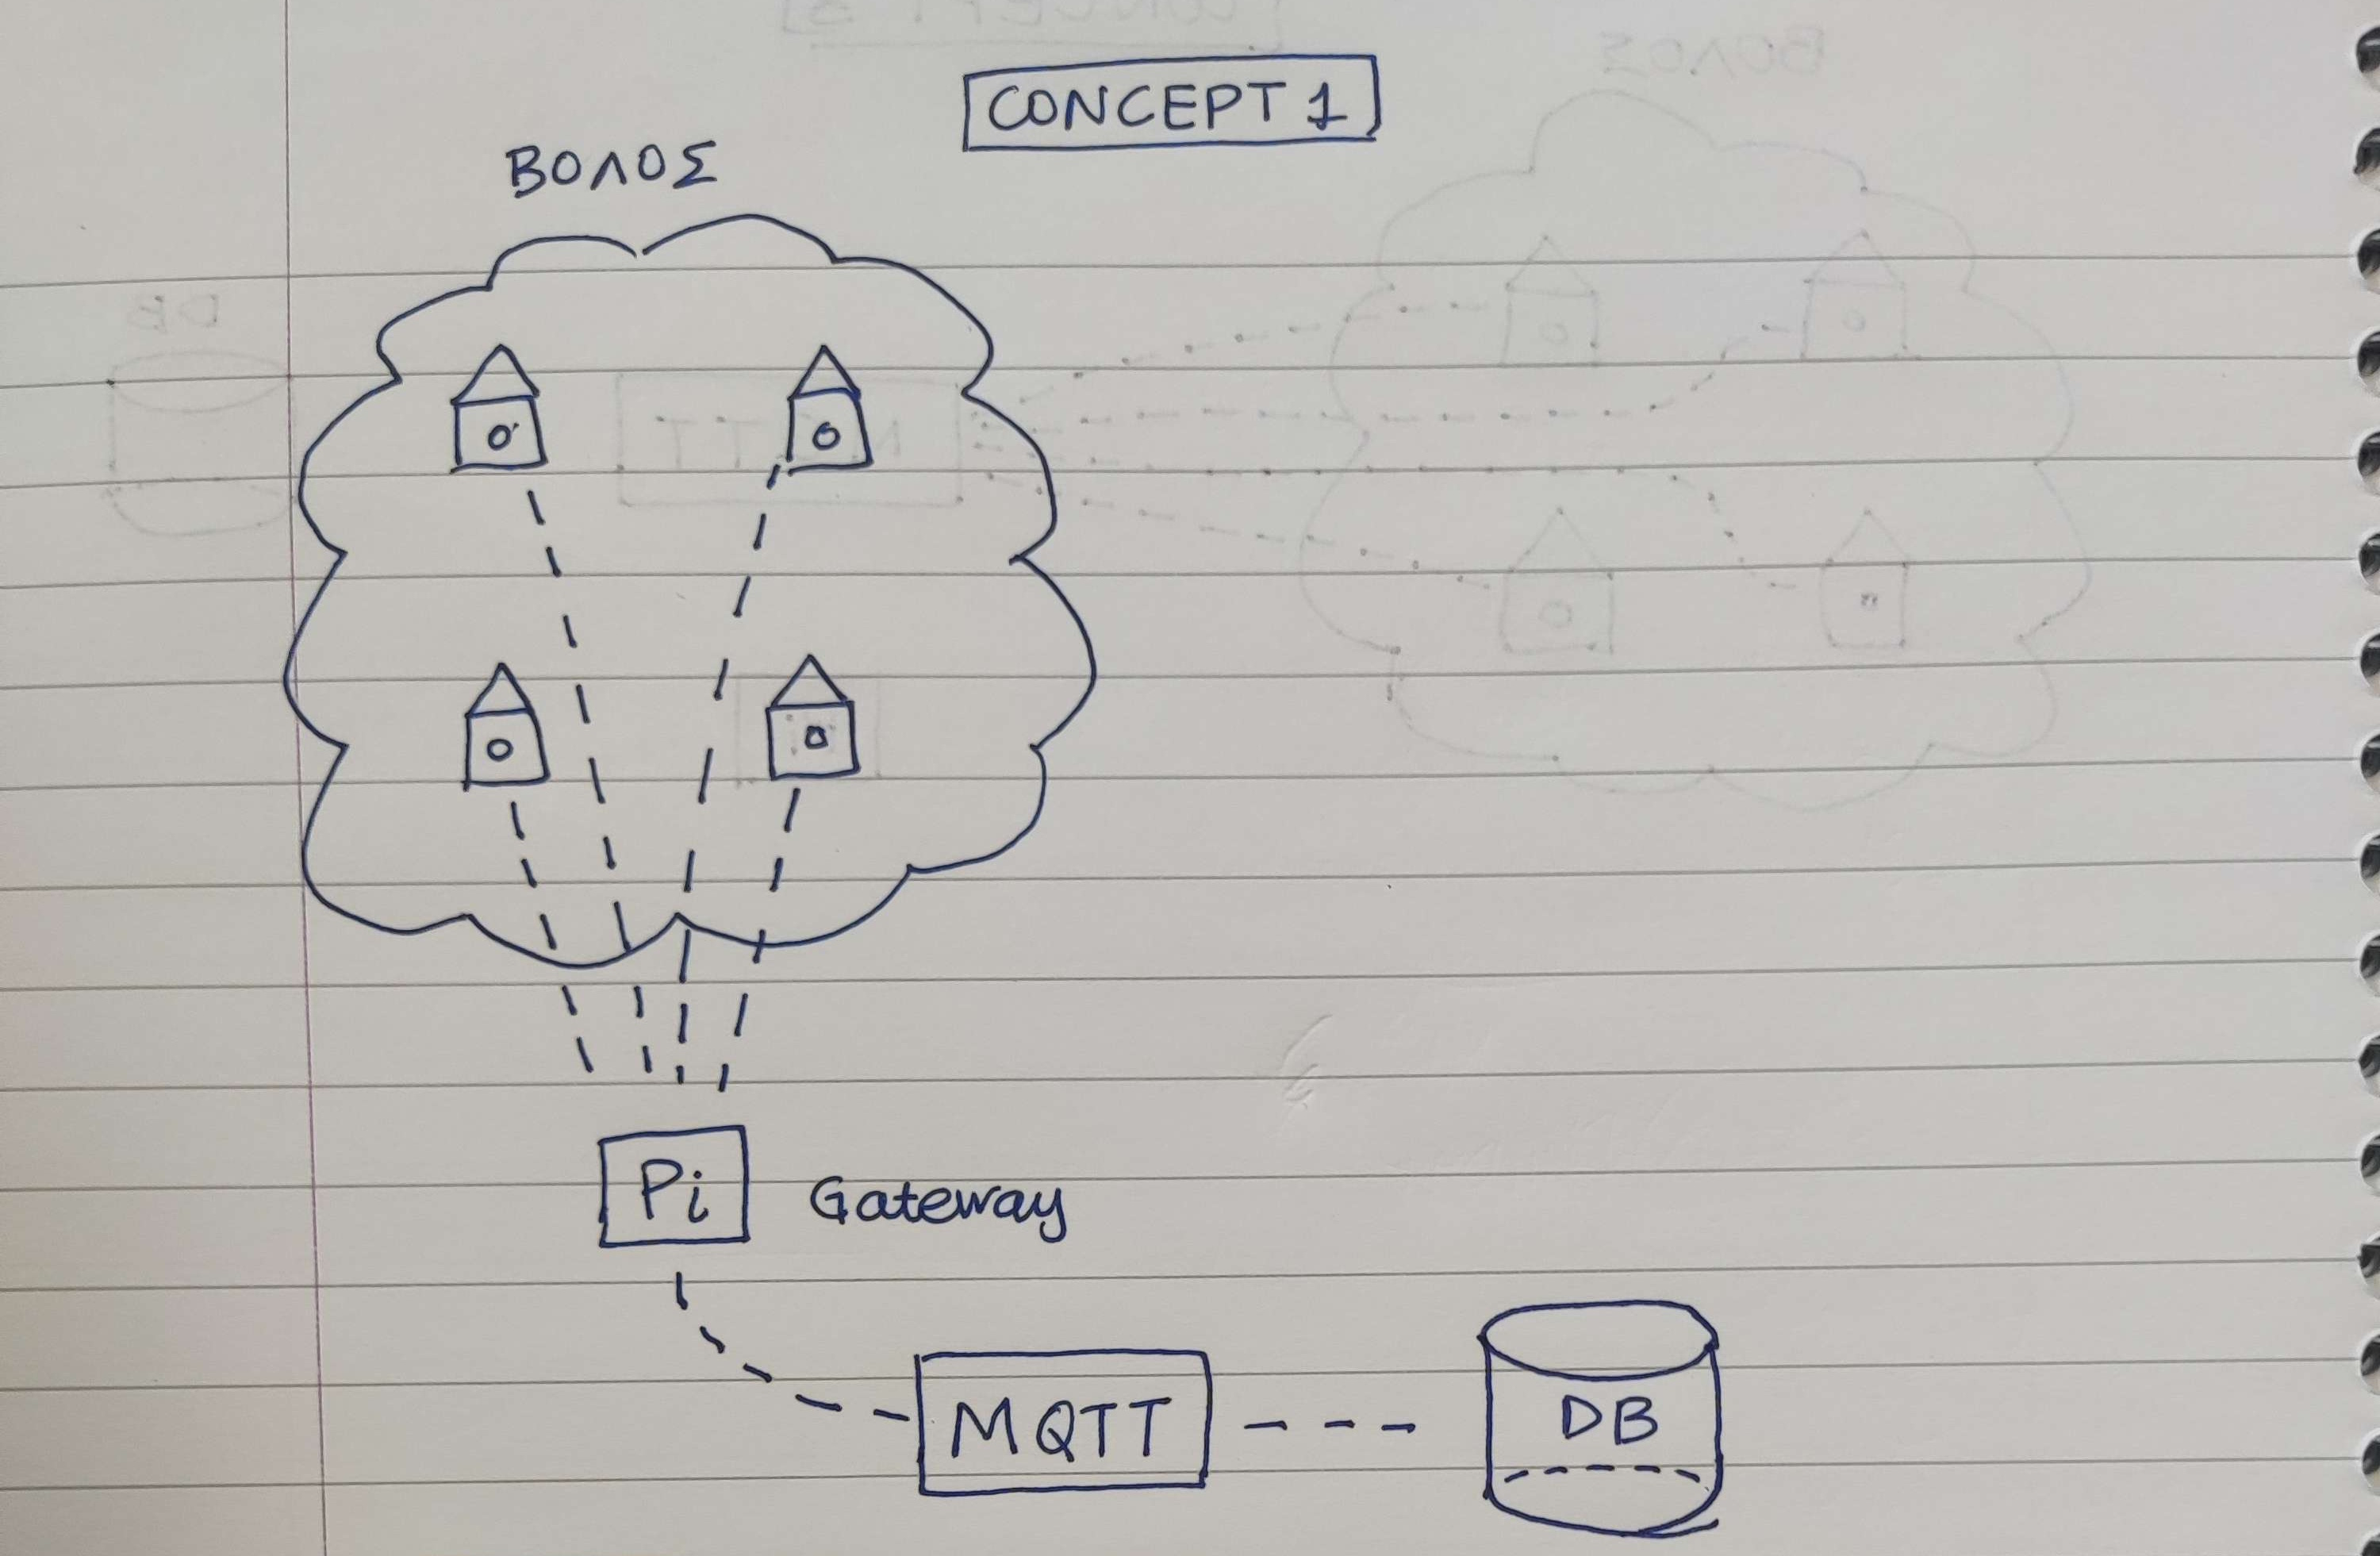 CONCEPT 1
ΒΟΛΟΣ
Pi Gateway
MQTT
DB